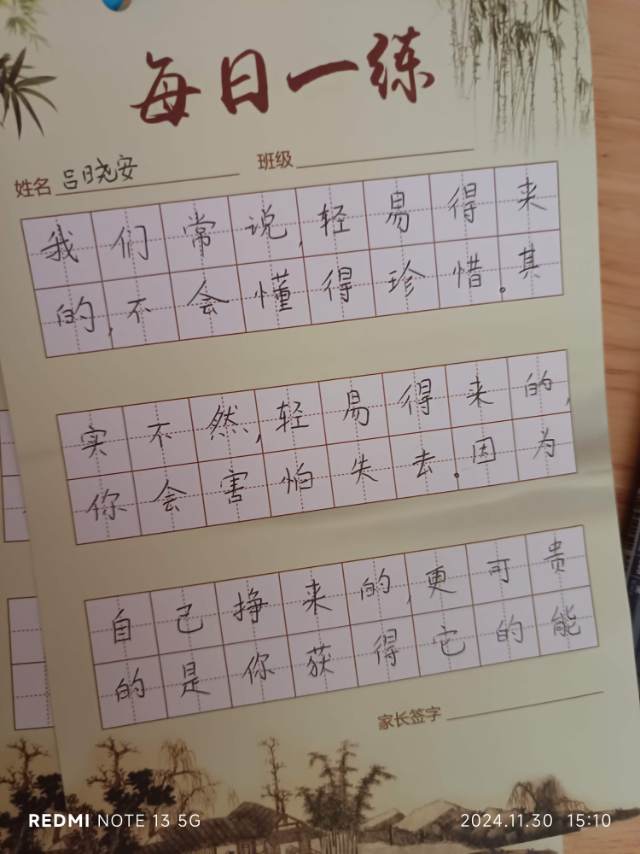 每日一练
姓名 吕晓安 班级
我们常说,轻易得来
的,不会懂得珍惜。其
实不然,轻易得来的,
你会害怕失去。因为
自己挣来的,更可贵
的是你获得它的能
家长签字
REDMI NOTE 13 5G 2024.11.30 15:10